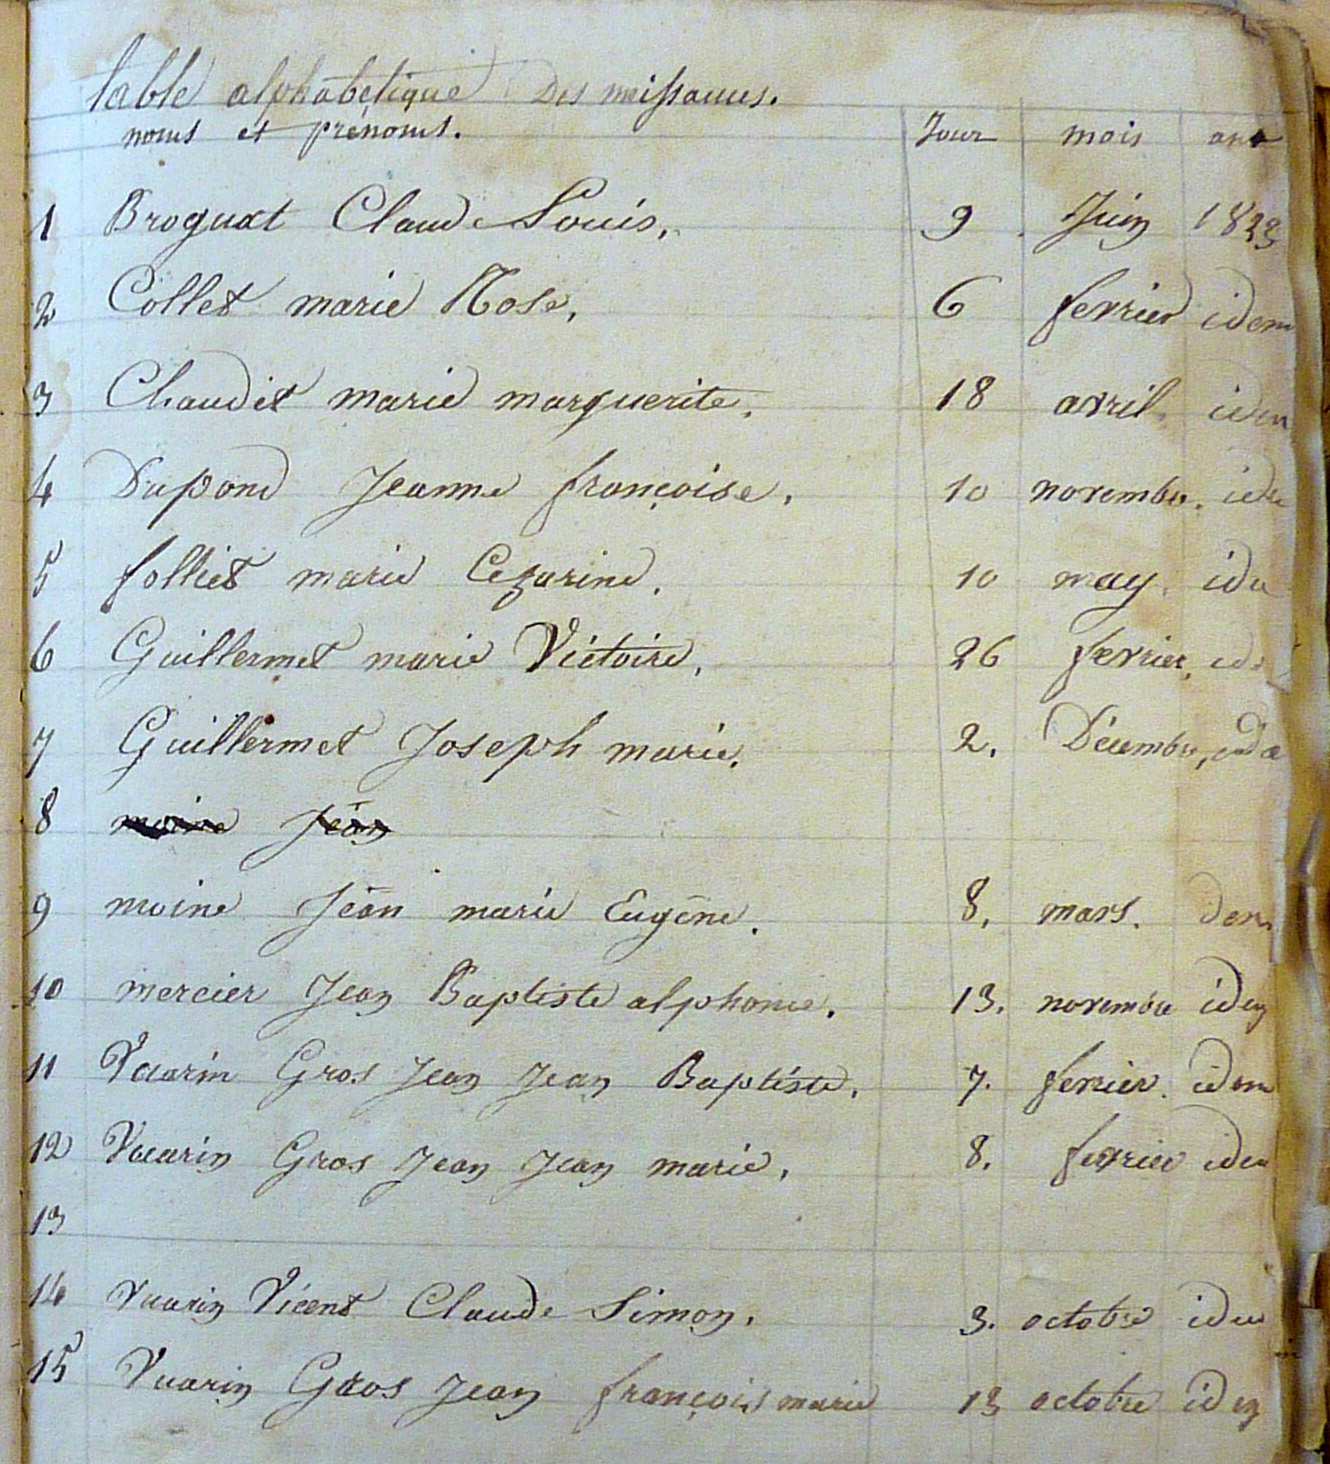 table alphabetique Des naissances.
noms et prénoms. Jour mois ans
1 Broguat Claude Louis, 9 Juin 1823
2 Collet marie Rose, 6 fevrier idem
3 Chaudet marie marguerite. 18 avril idem
4 Dupond Jeanne françoise, 10 novembre. idem
5 folliet marie Cezarine. 10 may. idem
6 Guillermet marie Victoire, 26 fevrier, idem
7 Guillermet Joseph marie. 2. Décembre, idem
8 moine Jean
9 moine Jean marie Eugène. 8. mars. idem
10 mercier Jean Baptiste alphonse. 13. novembre idem
11 Vuarin Gros Jean Jean Baptiste. 7. fevrier. idem
12 Vuarin Gros Jean Jean marie, 8. fevrier idem
13
14 Vuarin Vicent Claude Simon. 3. octobre idem
15 Vuarin Gros Jean françois marie 13 octobre idem